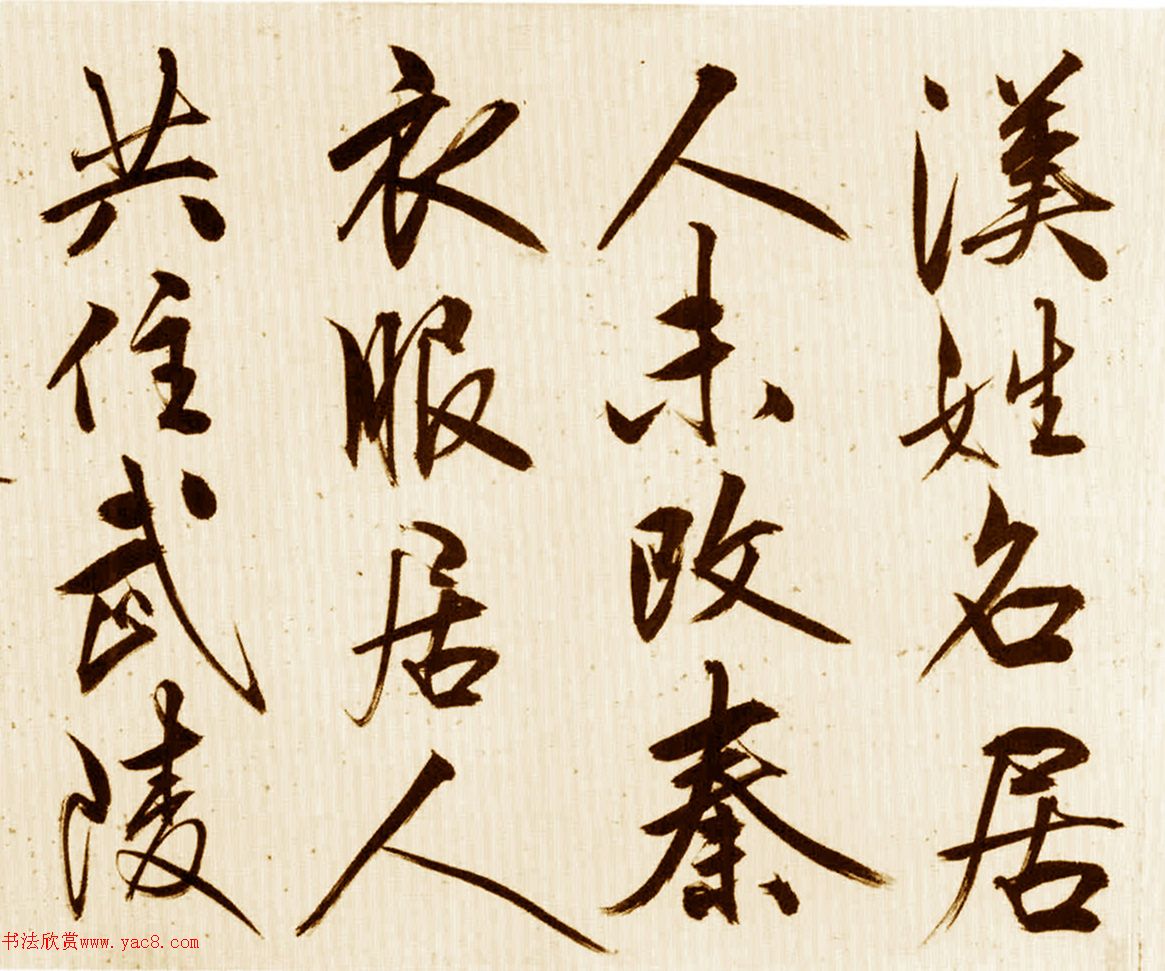 漢姓名居
人未改秦
衣服居人
共住武陵
书法欣赏www.yac8.com